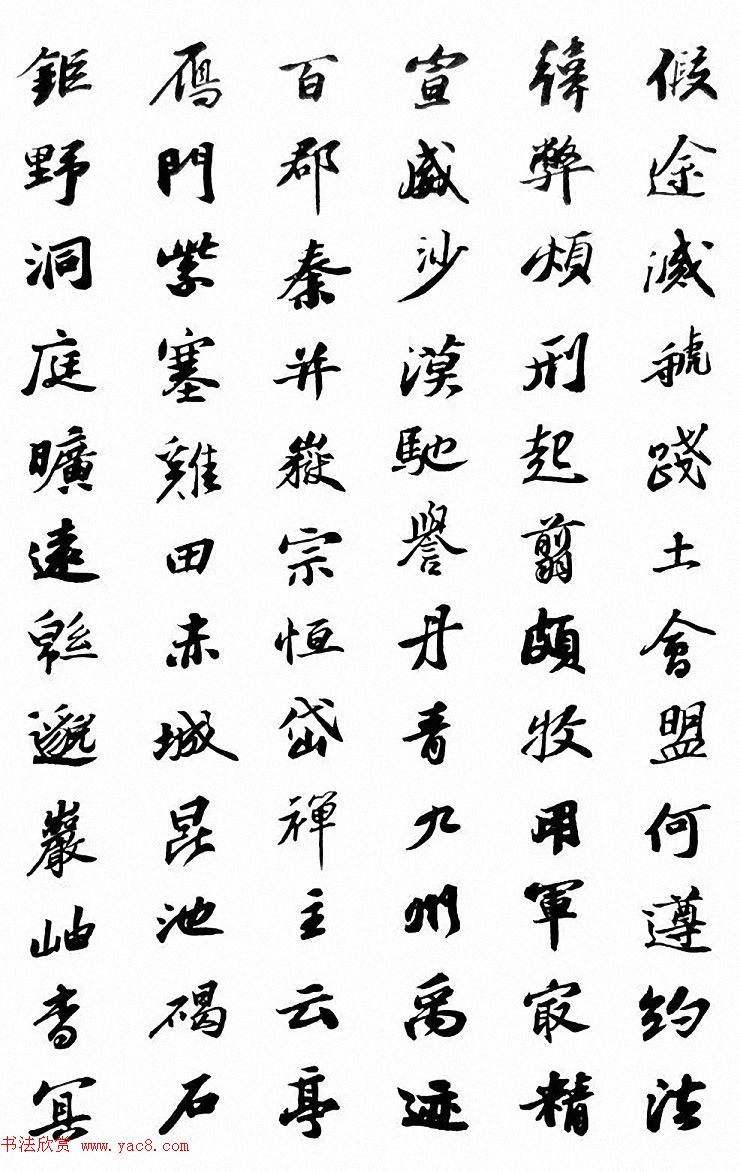 假途滅虢踐土會盟何遵約法
韓弊煩刑起翦頗牧用軍最精
宣威沙漠馳譽丹青九州禹迹
百郡秦并嶽宗恒岱禪主云亭
鴈門紫塞雞田赤城昆池碣石
鉅野洞庭曠遠緜邈巖岫杳冥
书法欣赏 www.yac8.com